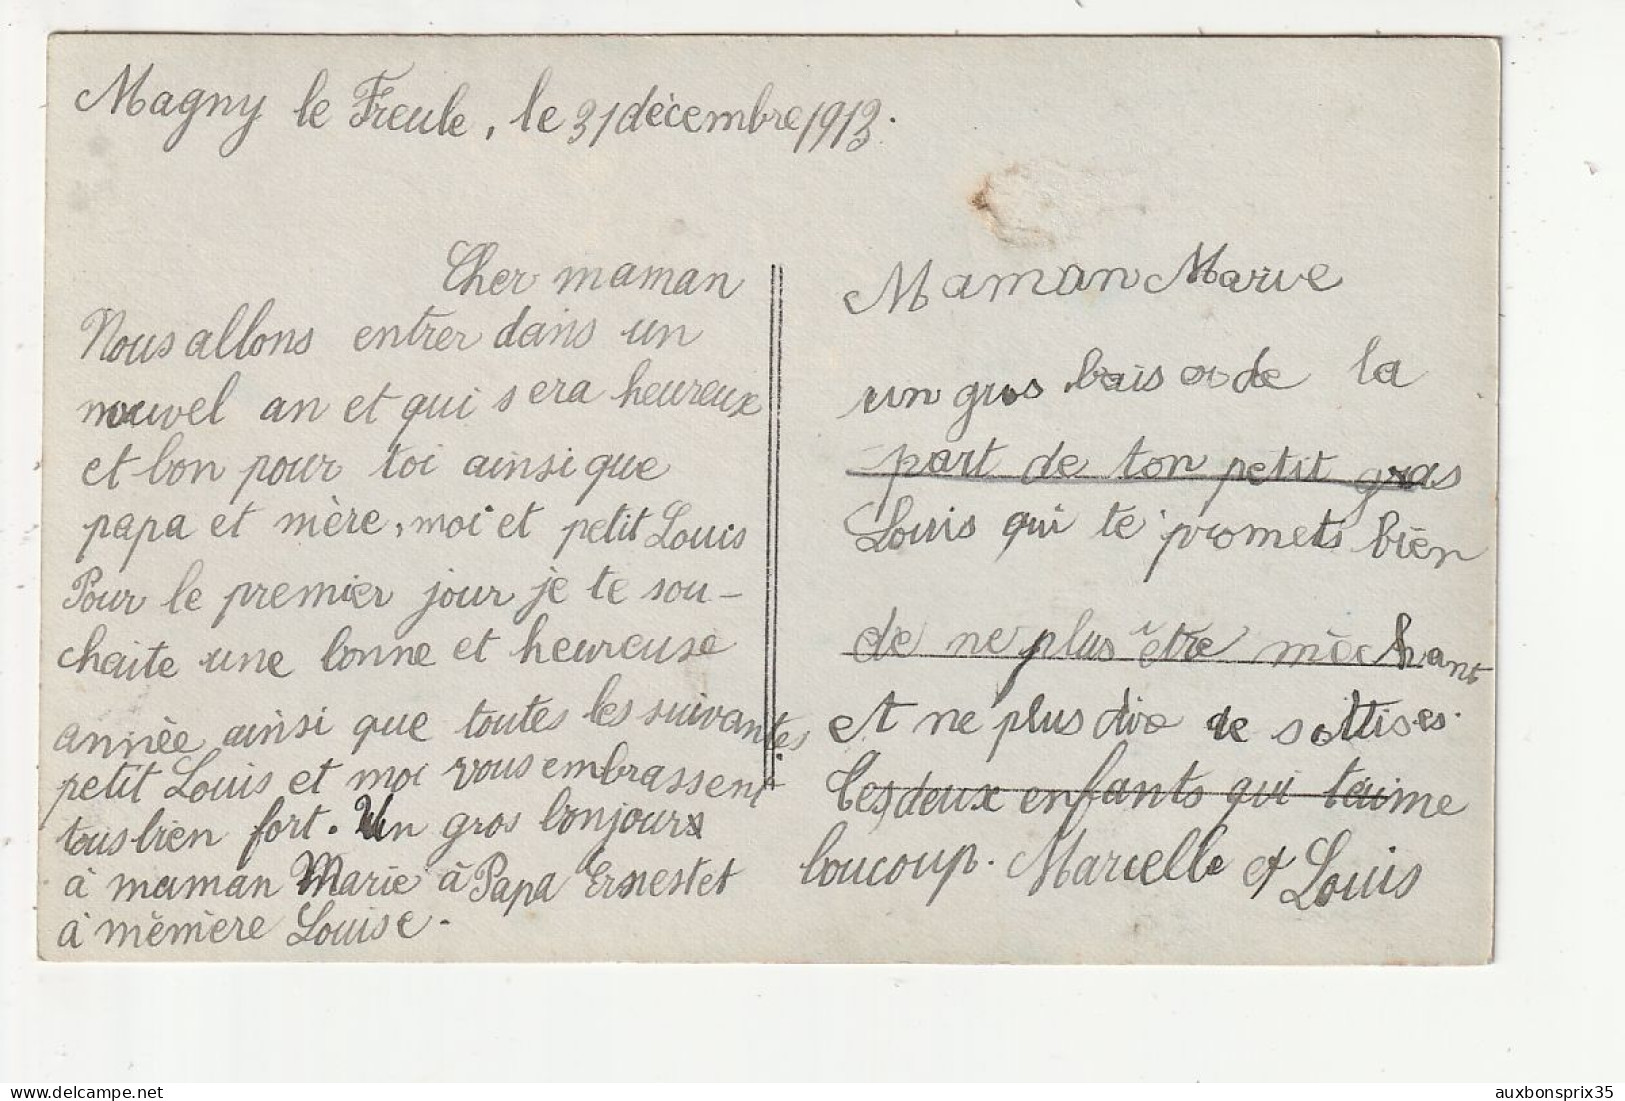 Magny le Freule, le 31 décembre 1913.
Cher maman
Nous allons entrer dans un
nouvel an et qui sera heureux
et bon pour toi ainsi que
papa et mère, moi et petit Louis
Pour le premier jour je te sou-
haite une bonne et heureuse
année ainsi que toutes les suivantes
petit Louis et moi vous embrassent
tous bien fort. Un gros bonjour
à maman Marie à Papa Ernest et
à mémère Louise.
Maman Marie
un gros baiso de la
part de ton petit gras
Louis qui te promets bien
de ne plus être méchant
et ne plus dire de sottises.
Tes deux enfants qui t'aime
boucoup. Marcelle et Louis
auxbonsprix35